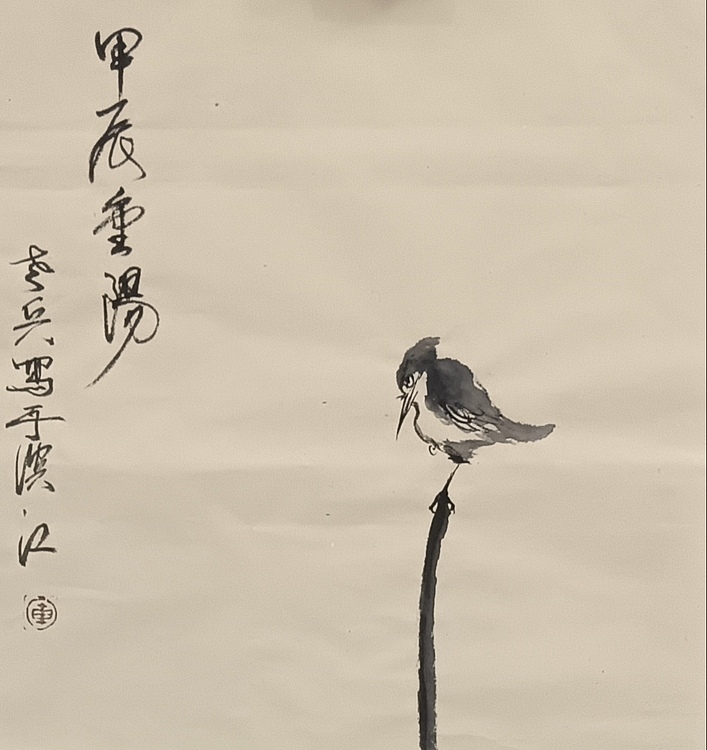 甲辰重陽
老兵寫于濱江